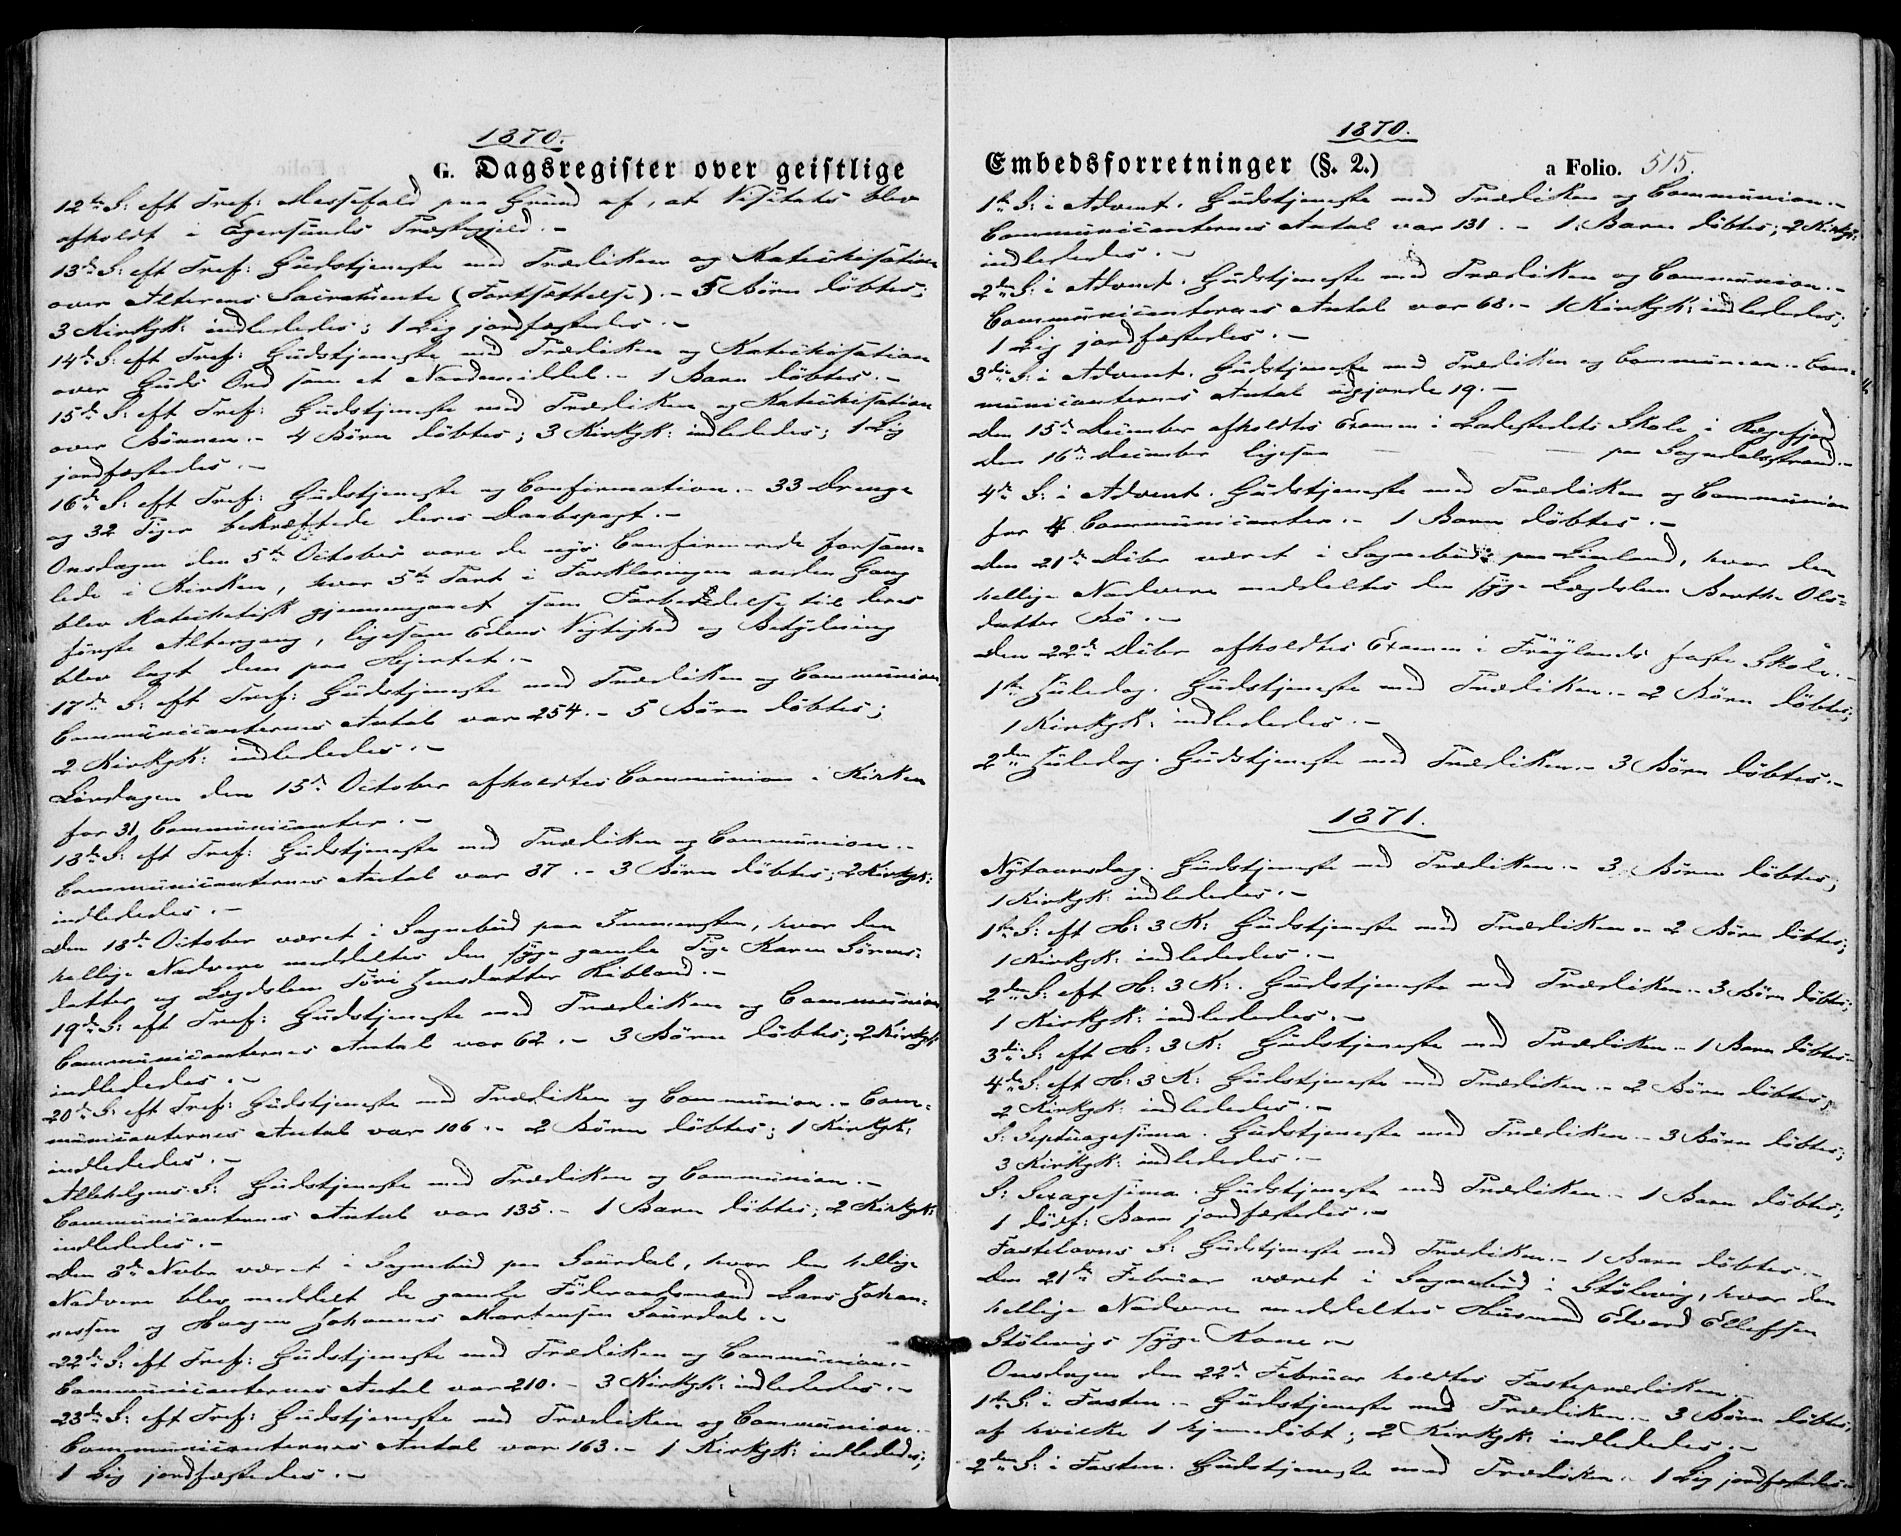 1870.
G. Dagsregister over geistlige
12te S: eft Tref: Messefald paa Grund af, at Visitats blev
afholdt i Egersunds Præstegjeld. –
13de S: eft Tref: Gudstjeneste med Prædiken og Katechisation
over Alterens Sacramente (Fortsættelse). – 5 Børn døbtes;
3 Kirkgk: indlededes; 1 Lig jordfæstedes. –
14de S: eft Tref: Gudstjeneste med Prædiken og Katechisation
over Guds Ord som et Naademiddel. – 1 Barn døbtes. –
15de S: eft Tref: Gudstjeneste med Prædiken og Katechisation
over Bønnen. – 4 Børn døbtes; 3 Kirkgk: indlededes; 1 Lig
jordfæstedes. –
16de S: eft Tref: Gudstjeneste og Confirmation. – 33 Drenge
og 32 Piger bekræftede deres Daabspagt. –
Onsdagen den 5te October vare de nys Confirmerede forsam=
lede i Kirken, hvor 5te Part i Forklaringen anden Gang
blev katechetisk gjennemgaaet som Forberedelse til deres
første Altergang, ligesom Edens Vigtighed og Betydning
blev lagt dem paa Hjertet. –
17de S: eft Tref: Gudstjeneste med Prædiken og Communion,
Communicanternes Antal var 254. – 5 Børn døbtes;
2 Kirkgk: indlededes. –
Løverdagen den 15de October afholdtes Communion i Kirken
for 31 Communicanter. –
18de S: eft Tref: Gudstjeneste med Prædiken og Communion. –
Communicanternes Antal var 87. – 3 Børn døbtes; 2 Kirkgk:
indlededes. –
Den 18de October været i Sognebud paa, hvor den
hellige Nadvere meddeltes den syge gamle Pige Karen Sørens=
datter og Lægdslem Tori Jensdatter Hibland. –
19de S: eft Tref: Gudstjeneste med Prædiken og Communion
Communicanternes Antal var 62. – 3 Børn døbtes; 2 Kirkgk:
indlededes. –
20de S: eft Tref: Gudstjeneste med Prædiken og Communion. – Com=
municanternes Antal var 106. – 2 Børn døbtes; 1 Kirkgk:
indlededes. –
Allehelgens S: Gudstjeneste med Prædiken og Communion. –
Communicanternes Antal var 135. – 1 Barn døbtes; 2 Kirkgk:
indlededes. –
Den 8de Novbr været i Sognebud paa Saurdal, hvor den hellige
Nadvere blev meddelt de gamle Føderaadsmænd Lars Johan=
nessen og Haagen Johannes Mortensen Saurdal. –
22de S: eft Tref: Gudstjeneste med Prædiken og Communion. –
Communicanternes Antal var 210. – 3 Kirkgk: indlededes. –
23de S: eft Tref: Gudstjeneste med Prædiken og Communion. –
Communicanternes Antal var 163. – 1 Kirkgk: indlededes;
1 Lig jordfæstedes. –
1870.
Embedsforretninger (§. 2.) a Folio. 515.
1ste S: i Advent. Gudstjeneste med Prædiken og Communion. –
Communicanternes Antal var 131. – 1 Barn døbtes; 2 Kirkgk:
indlededes. –
2den S: i Advent. Gudstjeneste med Prædiken og Communion. –
Communicanternes Antal var 68. – 1 Kirkgk: indlededes;
1 Lig jordfæstedes. –
3die S: i Advent. Gudstjeneste med Prædiken og Communion. – Com=
municanternes Antal udgjorde 19. –
Den 15de December afholdtes Examen i Ladestedets Skole i Rægefjord
Den 16de December ligesaa — — paa Sogndalsstrand. –
4de S: i Advent. Gudstjeneste med Prædiken og Communion
for 4 Communicanter. – 1 Barn døbtes. –
Den 21de Dcbr været i Sognebud paa Linland, hvor den
hellige Nadvere meddeltes den syge Lægdslem Berthe Ols=
datter Bø. –
Den 22de Dcbr afholdtes Examen i Frøylands faste Skole. –
1ste Juledag. Gudstjeneste med Prædiken. – 2 Børn døbtes;
1 Kirkgk: indlededes. –
2den Juledag. Gudstjeneste med Prædiken. – 3 Børn døbtes. –
1871.
Nytaarsdag. Gudstjeneste med Prædiken. – 3 Børn døbtes;
1 Kirkgk: indlededes. –
1ste S: eft H: 3 K: Gudstjeneste med Prædiken. – 2 Børn døbtes;
1 Kirkgk: indlededes. –
2den S: eft H: 3 K: Gudstjeneste med Prædiken. – 3 Børn døbtes;
1 Kirkgk: indlededes. –
3die S: eft H: 3 K: Gudstjeneste med Prædiken. – 1 Barn døbtes. –
4de S: eft H: 3 K: Gudstjeneste med Prædiken. – 2 Børn døbtes;
2 Kirkgk: indlededes. –
S: Septuagesima. Gudstjeneste med Prædiken. – 3 Børn døbtes;
3 Kirkgk: indlededes. –
S: Sexagesima. Gudstjeneste med Prædiken. – 1 Barn døbtes;
1 dødf: Barn jordfæstedes. –
Fastelavns S: Gudstjeneste med Prædiken. – 1 Barn døbtes. –
Den 21de Februar været i Sognebud i Stølevig, hvor den
hellige Nadvere meddeltes Huusmand Edvard Ellefsen
Stølevigs syge Kone. –
Onsdagen den 22de Februar holdtes Fasteprædiken. –
1ste S: i Fasten. – Gudstjeneste med Prædiken. – 3 Børn døbtes;
af hvilke 1 hjemmedøbt; 2 Kirkgk: indlededes. –
2den S: i Fasten. Gudstjeneste med Prædiken. – 1 Lig jordfæstedes. –